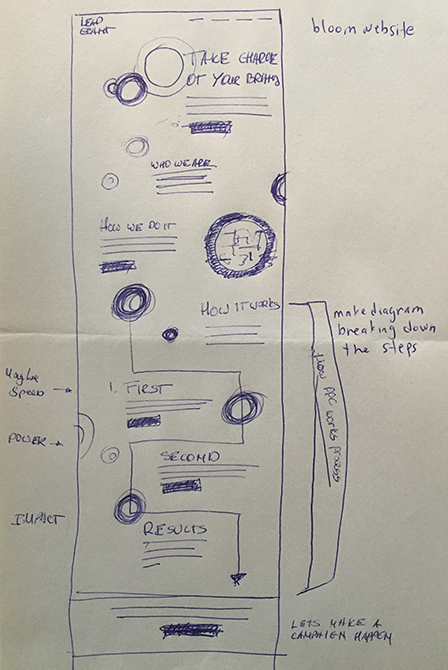 LEAD
GRANT
bloom website
TAKE CHARGE
OF YOUR BRAND
WHO WE ARE
HOW WE DO IT
HOW IT WORKS
make diagram
breaking down
the steps
How PPC works Process
Maybe
Speed
1. FIRST
POWER
SECOND
IMPACT
RESULTS
LETS MAKE A
CAMPAIGN HAPPEN